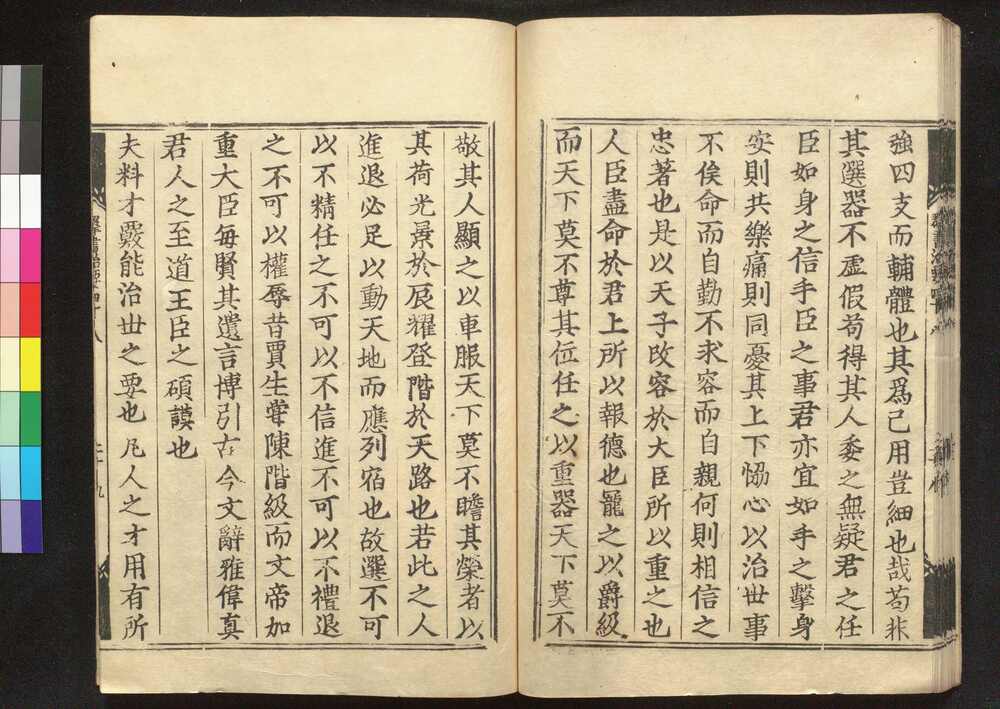 強四支而輔體也其爲己用豈細也哉苟非
其選器不虛假苟得其人委之無疑君之任
臣如身之信手臣之事君亦宜如手之擊身
安則共樂痛則同憂其上下恊心以治世事
不俟命而自勤不求容而自親何則相信之
忠著也是以天子改容於大臣所以重之也
人臣盡命於君上所以報德也寵之以爵級
而天下莫不尊其位任之以重器天下莫不
敬其人顯之以車服天下莫不瞻其榮者以
其荷光景於辰耀登階於天路也若此之人
進退必足以動天地而應列宿也故選不可
以不精任之不可以不信進不可以不禮退
之不可以權辱昔賈生常陳階級而文帝加
重大臣每賢其遺言博引古今文辭雅偉真
君人之至道王臣之碩謨也
夫料才覈能治世之要也凡人之才用有所
群書治要四十八